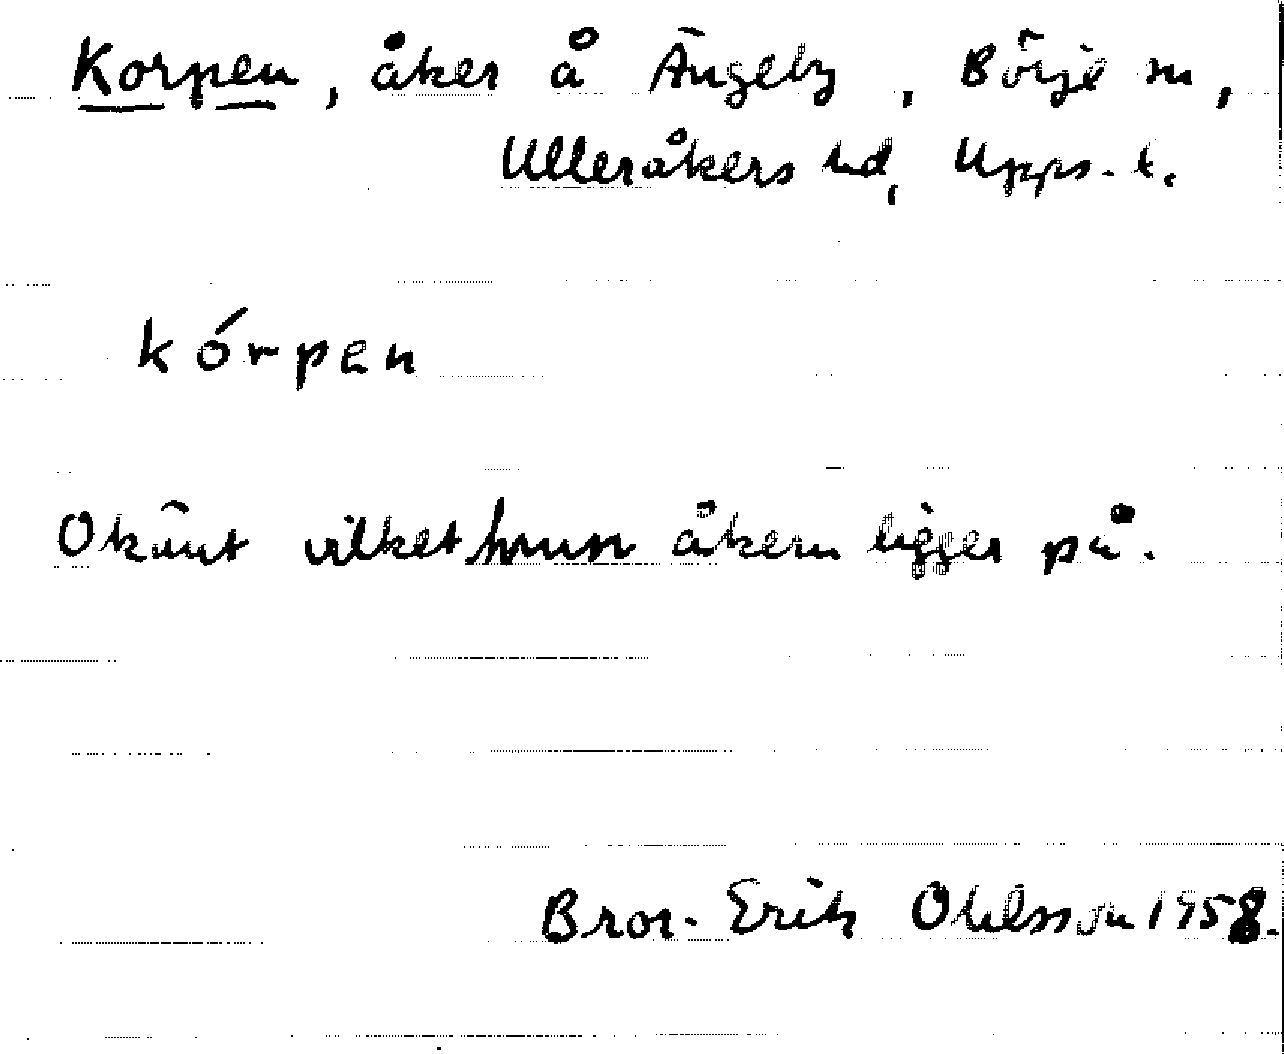 Korpen, åker å Ängeby, Börje sn,
Ulleråkers hd, Upps. l.
kórpen
Okänt vilket hemm åkern ligger på.
Bror-Erik Ohlsson 1958.